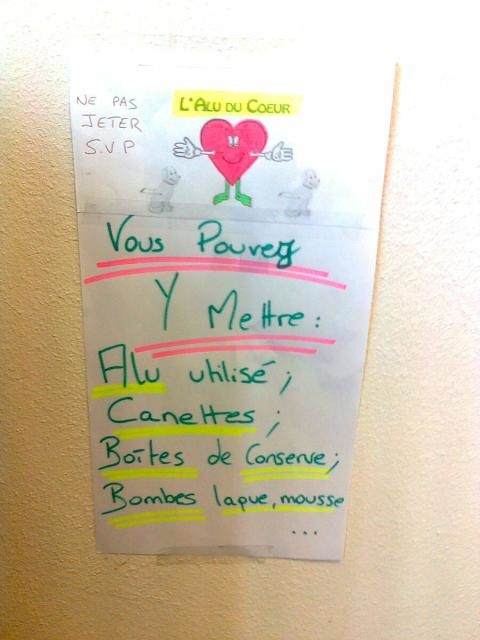 NE PAS
JETER
S.V.P
L'ALU DU COEUR
Vous Pouvez
Y Mettre :
Alu utilisé ;
Canettes ;
Boîtes de Conserve ;
Bombes laque, mousse
...